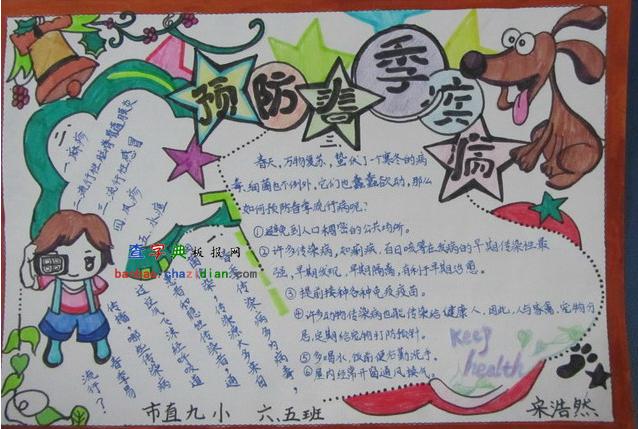 预防春季疾病
二
一、麻疹
二、流行性脑脊髓膜炎
三、流行性感冒
四、风疹
五、水痘
三
春天，万物复苏，蛰伏了一寒冬的病
毒、细菌也不例外，它们也蠢蠢欲动，那么
如何预防春季流行病呢？
①避免到人口稠密的公共场所。
②许多传染病，如菌痢、百日咳等在发病的早期传染性最
强，早期发现，早期隔离，有利于早期治愈。
③提前接种各种免疫疫苗。
④许多动物传染病也能传染给健康人，因此，人与家禽、宠物分
居，定期给宠物打防预针。
⑤多喝水，饭前便后勤洗手。
⑥屋内经常开窗通风换气。
Keep
health
查字典板报网
baobao.chazidian.com
市直九小 六.五班
宋浩然